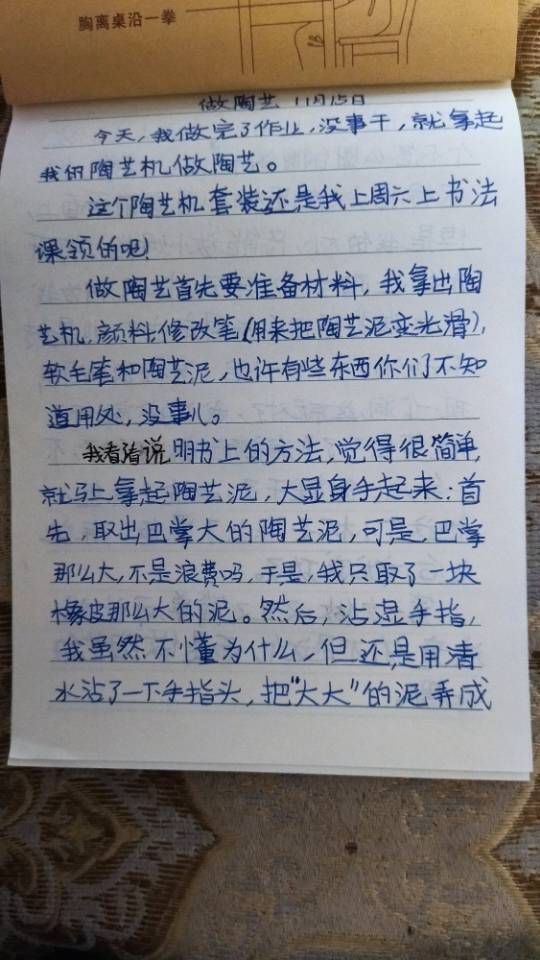 胸离桌沿一拳
做陶艺 11月15日
今天,我做完了作业,没事干,就拿起
我的陶艺机做陶艺。
这个陶艺机套装还是我上周六上书法
课领的呢!
做陶艺首先要准备材料,我拿出陶
艺机、颜料、修改笔(用来把陶艺泥变光滑),
软毛笔和陶艺泥,也许有些东西你们不知
道用处,没事儿。
我看着说明书上的方法,觉得很简单,
就马上拿起陶艺泥,大显身手起来:首
先,取出巴掌大的陶艺泥,可是,巴掌
那么大,不是浪费吗,于是,我只取了一块
橡皮那么大的泥。然后,沾湿手指,
我虽然不懂为什么,但还是用清
水沾了一下手指头,把“大大”的泥弄成